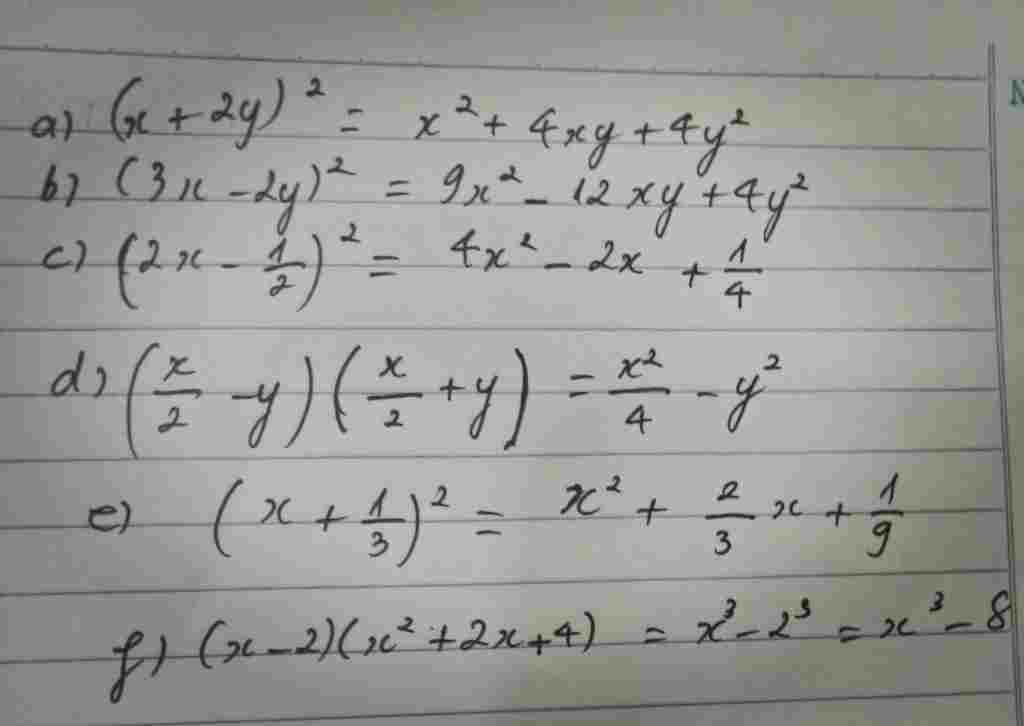 a) (x + 2y)² = x² + 4xy + 4y²
b) (3x - 2y)² = 9x² - 12xy + 4y²
c) (2x - 1/2)² = 4x² - 2x + 1/4
d) (x/2 - y)(x/2 + y) = x²/4 - y²
e) (x + 1/3)² = x² + 2/3 x + 1/9
f) (x - 2)(x² + 2x + 4) = x³ - 2³ = x³ - 8